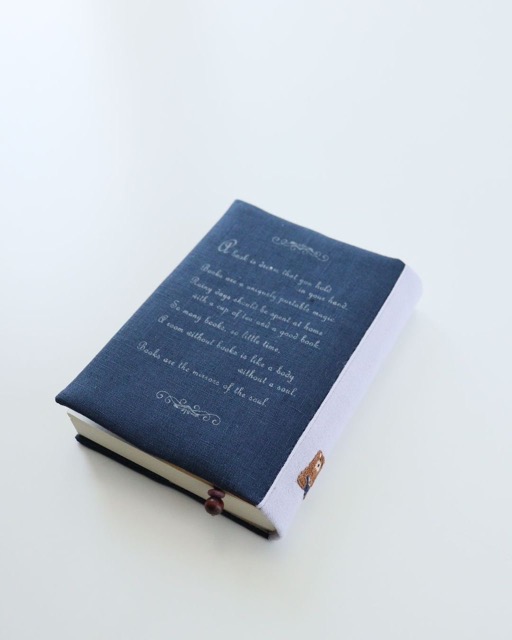 A book is dream that you hold
in your hand.
Books are a uniquely portable magic.
Rainy days should be spent at home
with a cup of tea and a good book.
So many books, so little time.
A room without books is like a body
without a soul.
Books are the mirrors of the soul.